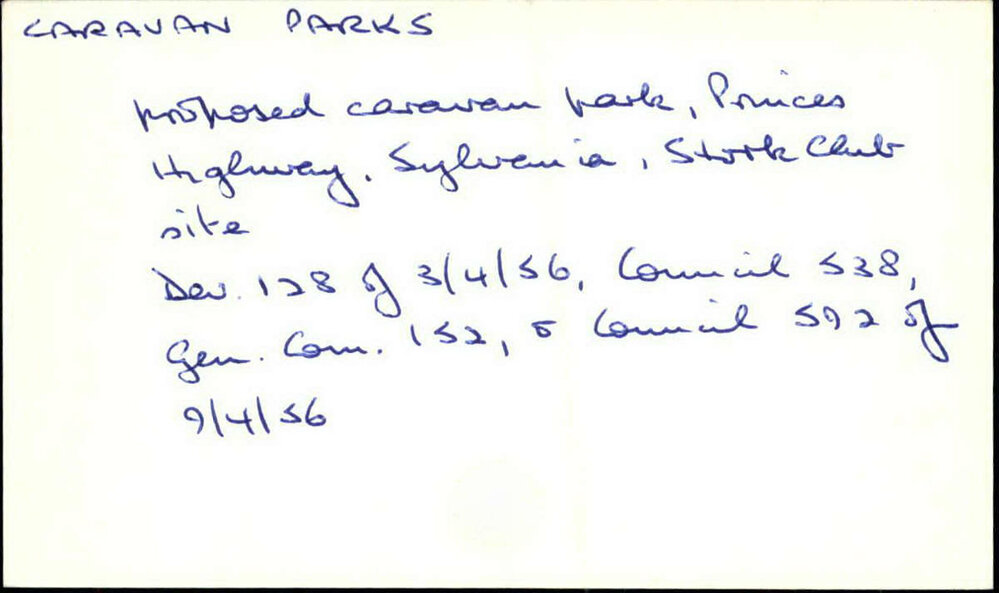 CARAVAN PARKS
proposed caravan park, Princes
Highway, Sylvania, Stork Club
site
Dev. 128 of 3/4/56, Council 538,
Gen. Com. 152, & Council 592 of
9/4/56